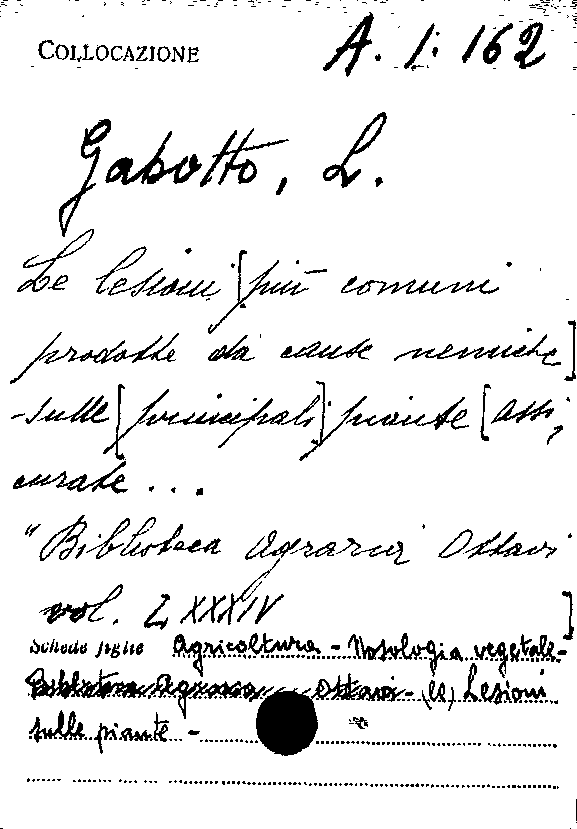 COLLOCAZIONE A. 1. 162
Gabotto, L.
Le lesioni [più comuni
prodotte da cause nemiche]
sulle [principali] piante [assi,
curate ...
"Biblioteca Agraria Ottavi
vol. LXXXIV ]
Schede figlie Agricoltura - Nosologia vegetale -
Biblioteca Agraria Ottavi - (Le) Lesioni
sulle piante -